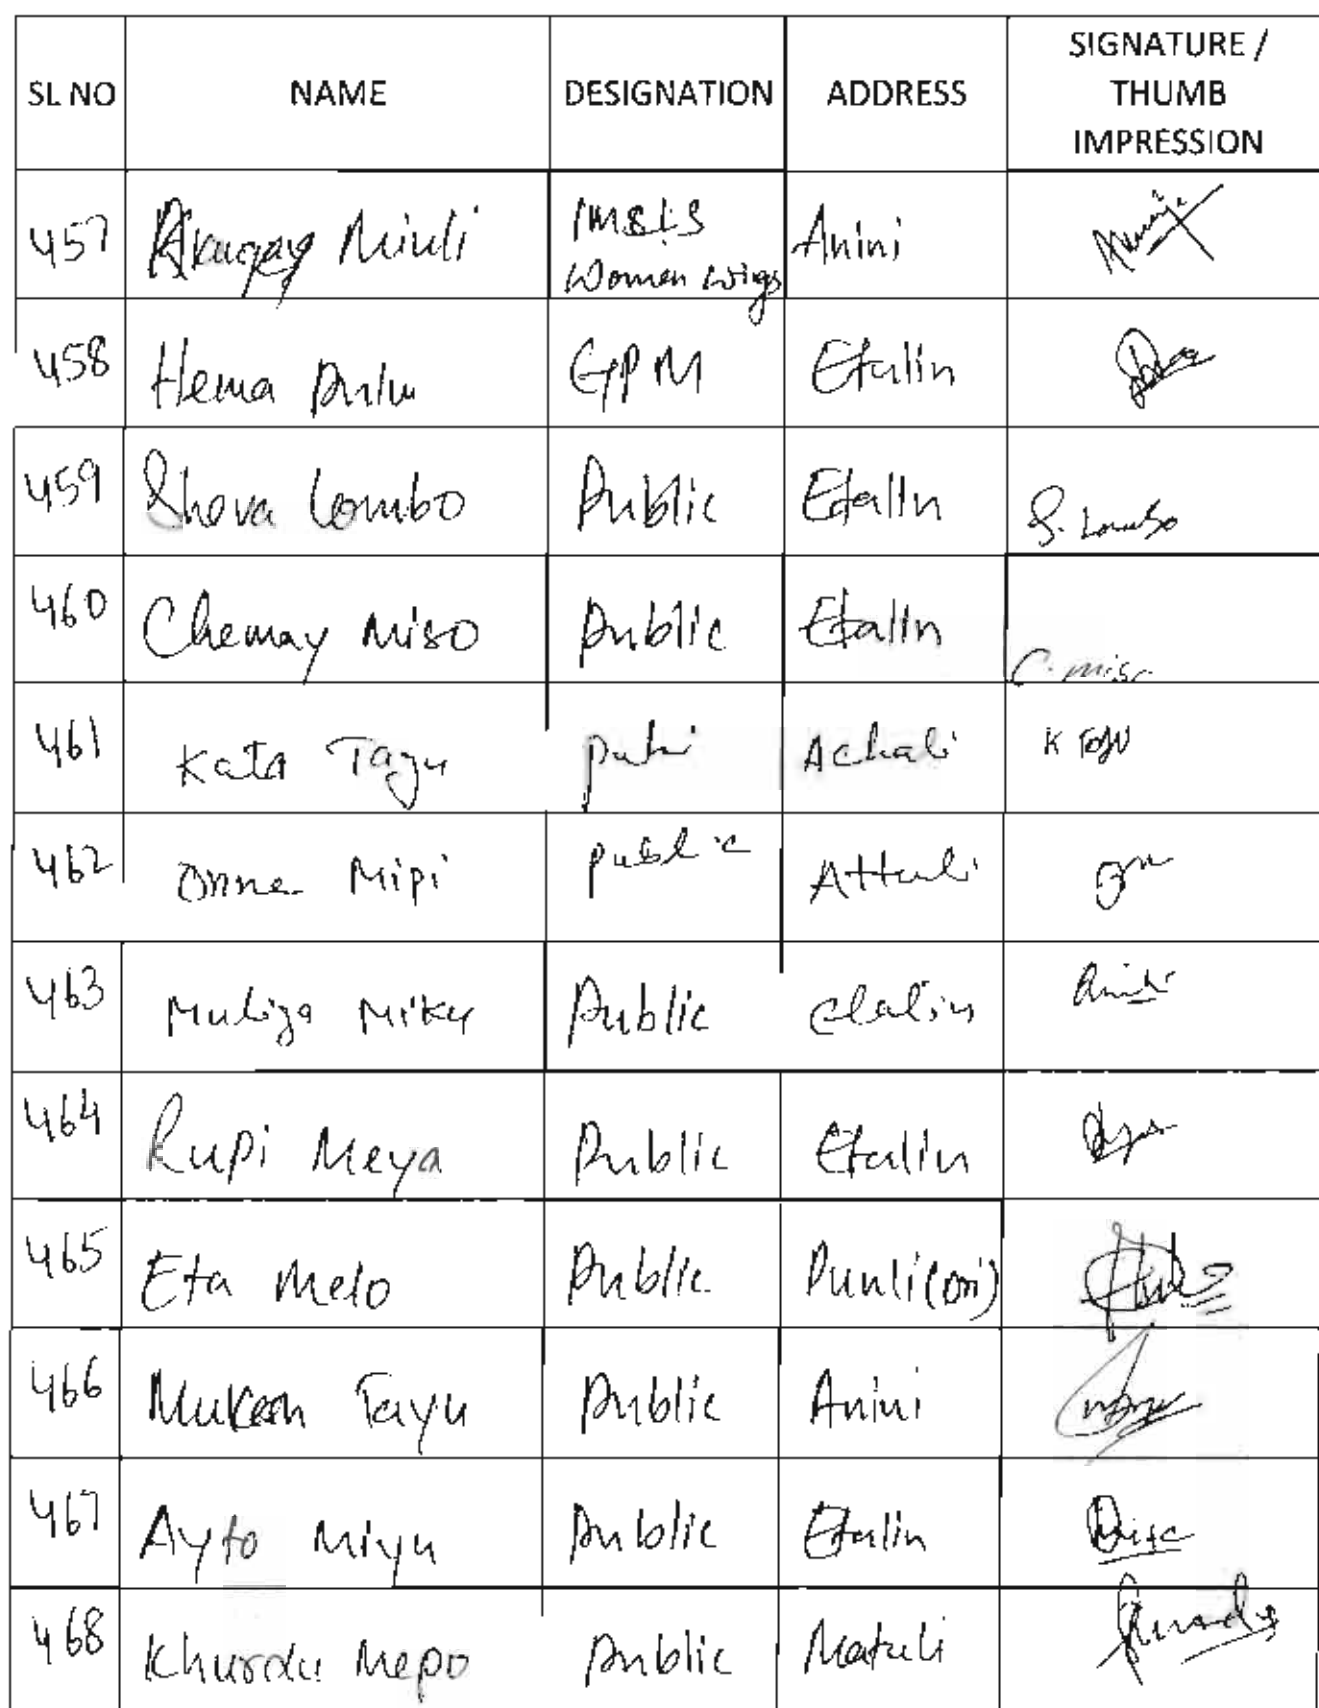 SL NO NAME DESIGNATION ADDRESS SIGNATURE / THUMB IMPRESSION
457 Miuli IM&LS Women wings Anini
458 Hema Pulu GPM Etalin
459 Sheva Lombo Public Etalin S. Lombo
460 Chemay Miso Public Etalin C. miso
461 Kata Tayu Achali K Tayu
462 Onne Mipi public Attuli
463 Muliya Miku Public elalin
464 Rupi Meya Public Etalin
465 Eta Melo Public Punli(Dri)
466 Tayu Public Anini
467 Ayto Miyu Public Etalin
468 Mepo Public Matuli